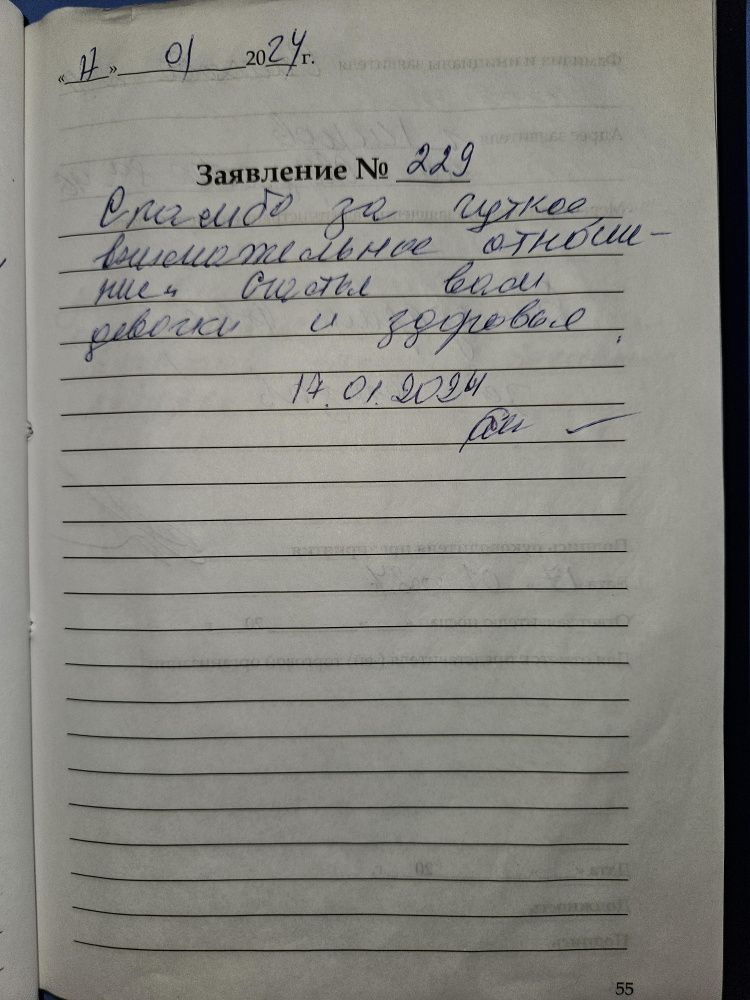 «17» 01 2024 г.
Заявление № 229
Спасибо за чуткое
внимательное отноше-
ние. Счастья вам
девочки и здоровья.
17.01.2024
55